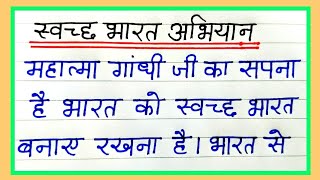 स्वच्छ भारत अभियान
महात्मा गांधी जी का सपना
है भारत को स्वच्छ भारत
बनाए रखना है। भारत से